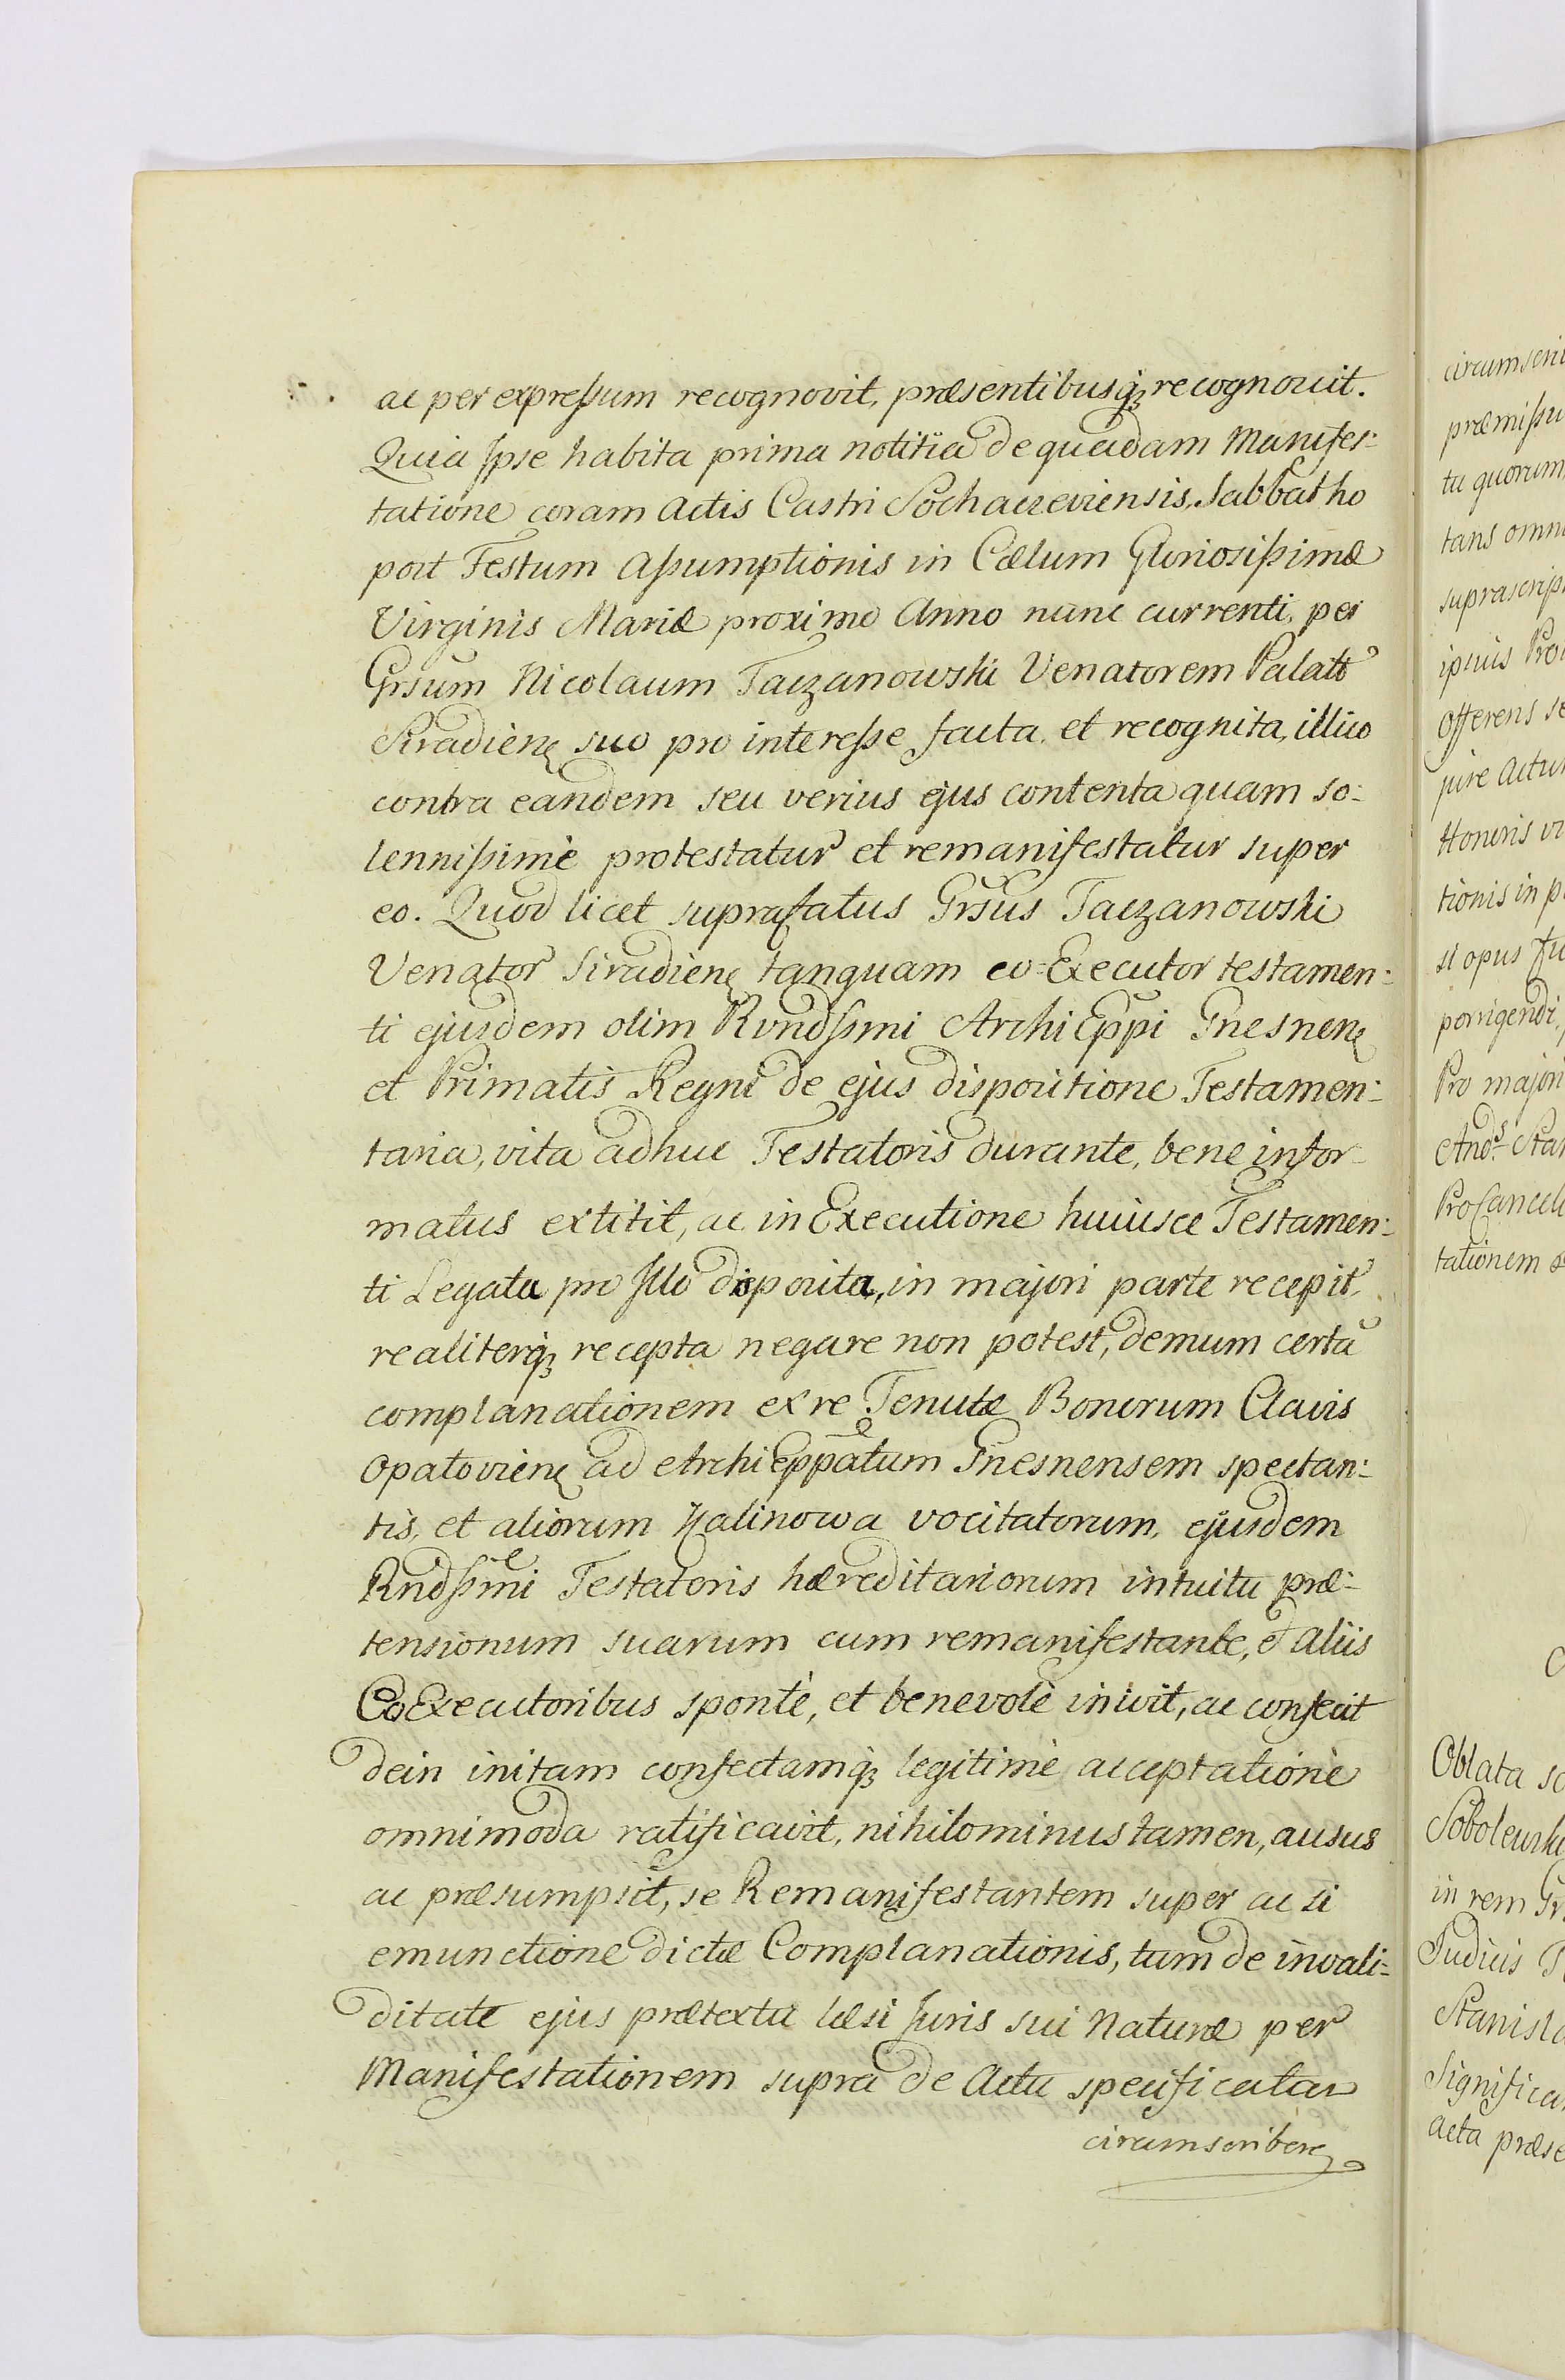 ac per expressum recognovit, præsentibusq; recognovit.
Quia Ipse habita prima notitia de quadam Manifes:
tatione coram Actis Castri Sochaczeviensis, Sabbatho
post Festum Assumptionis in Cælum Gloriosissimæ
Virginis Mariæ proximo Anno nunc currenti, per
Grsum Nicolaum Taczanowski Venatorem Palatt
Siradien, suo pro interesse facta, et recognita, illico
contra eandem seu verius ejus contenta quam so:
lennissimè protestatur et remanifestatur super
eo. Quod licet suprafatus Grsus Taczanowski
Venator Siradien, tanquam co-Executor testamen:
ti ejusdem olim Rvndssmi ArchiEppi Gnesnen,
et Primatis Regni de ejus dispositione Testamen:
taria, vita adhuc Testatoris durante, bene infor-
matus extitit, ac in Executione huiusce Testamen:
ti Legata pro Illo disposita, in majori parte recepit,
realiterq; recepta negare non potest, demum certã
complanationem ex re Tenutæ Bonorum Clavis
Opatovien, ad ArchiEppatum Gnesnensem spectan:
tis, et aliorum Kalinowa vocitatorum, ejusdem
Rndssmi Testatoris hæreditariorum intuitu præ:
tensionum suarum cum remanifestante, et aliis
CoExecutoribus spontè, et benevolè inivit, ac confecit
dein initam confectamq; legitimè acceptationè
omnimoda ratificavit, nihilominus tamen, ausus
ac præsumpsit, se Remanifestantem super ac si
emunctione dictæ Complanationis, tum de invali:
ditate ejus prætextu læsi Juris sui Naturæ per
Manifestationem supra de Actu specificatam
circumscribere
circumscri
præmissu
ta quorum
tans omni
suprascrip
ipsius Pro
Offerens se
jure actu
Honoris vi
tionis in p
si opus fu
porrigendi,
Pro majori
Andr. Stan
ProCancell
tationem s
Oblata sc
Sobolewski
in rem Gr
Judicis T
Stanisla
Significa
Acta præse